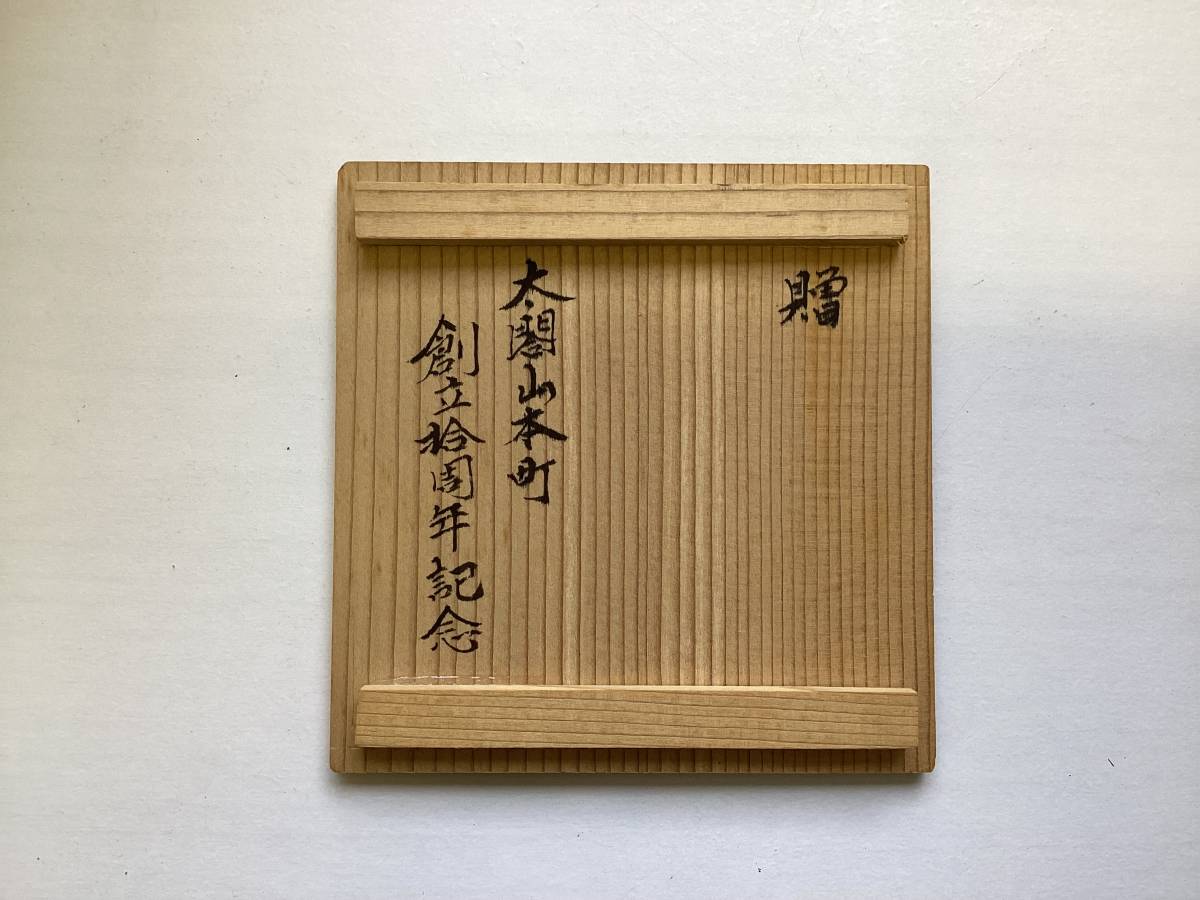 贈
太閤山本町
創立拾周年記念